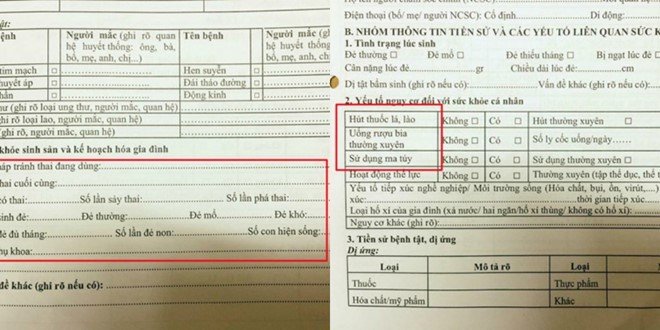 ật:
ệnh | Người mắc (ghi rõ quan hệ huyết thống: ông, bà, bố, mẹ, anh, chị...) | Tên bệnh | Người mắc (ghi hệ huyết thống bố, mẹ, anh, chị
tim mạch □ | Hen suyễn □
huyết áp □ | Đái tháo đường □
thần □ | Động kinh □
hư (ghi rõ loại ung thư, người mắc, quan hệ)
(ghi rõ loại lao, người mắc, quan hệ)
(ghi rõ, người mắc, quan hệ)
khỏe sinh sản và kế hoạch hóa gia đình
háp tránh thai đang dùng:
thai cuối cùng:
có thai: Số lần sảy thai: Số lần phá thai:
sinh đẻ: Đẻ thường: Đẻ mổ: Đẻ khó:
đẻ đủ tháng: Số lần đẻ non: Số con hiện sống:
hụ khoa:
đề khác (ghi rõ nếu có):
Điện thoại (bố/ mẹ/ người NCSC): Cố định Di động:
B. NHÓM THÔNG TIN TIỀN SỬ VÀ CÁC YẾU TỐ LIÊN QUAN SỨC K
1. Tình trạng lúc sinh
Đẻ thường □ Đẻ mổ □ Đẻ thiếu tháng □ Bị ngạt lúc đẻ □
Cân nặng lúc đẻ: gr Chiều dài lúc đẻ: cm
Dị tật bẩm sinh (ghi rõ nếu có): Vấn đề khác (ghi rõ nếu có):
2. Yếu tố nguy cơ đối với sức khỏe cá nhân
Hút thuốc lá, lào | Không □ | Có □ | Hút thường xuyên □
Uống rượu bia thường xuyên | Không □ | Có □ | Số ly cốc uống/ngày
Sử dụng ma túy | Không □ | Có □ | Sử dụng thường xuyên □
Hoạt động thể lực | Không □ | Có □ | Thường xuyên (tập thể dục, thể t
Yếu tố tiếp xúc nghề nghiệp/ Môi trường sống (Hóa chất, bụi, ồn, virút,...)
xúc: thời gian tiếp xúc
Loại hố xí của gia đình (xả nước/ hai ngăn/hố xí thùng/ không có hố xí):
Nguy cơ khác (ghi rõ):
3. Tiền sử bệnh tật, dị ứng
Dị ứng:
Loại | Mô tả rõ | Loại
Thuốc | Thực phẩm
Hóa chất/mỹ phẩm | Khác